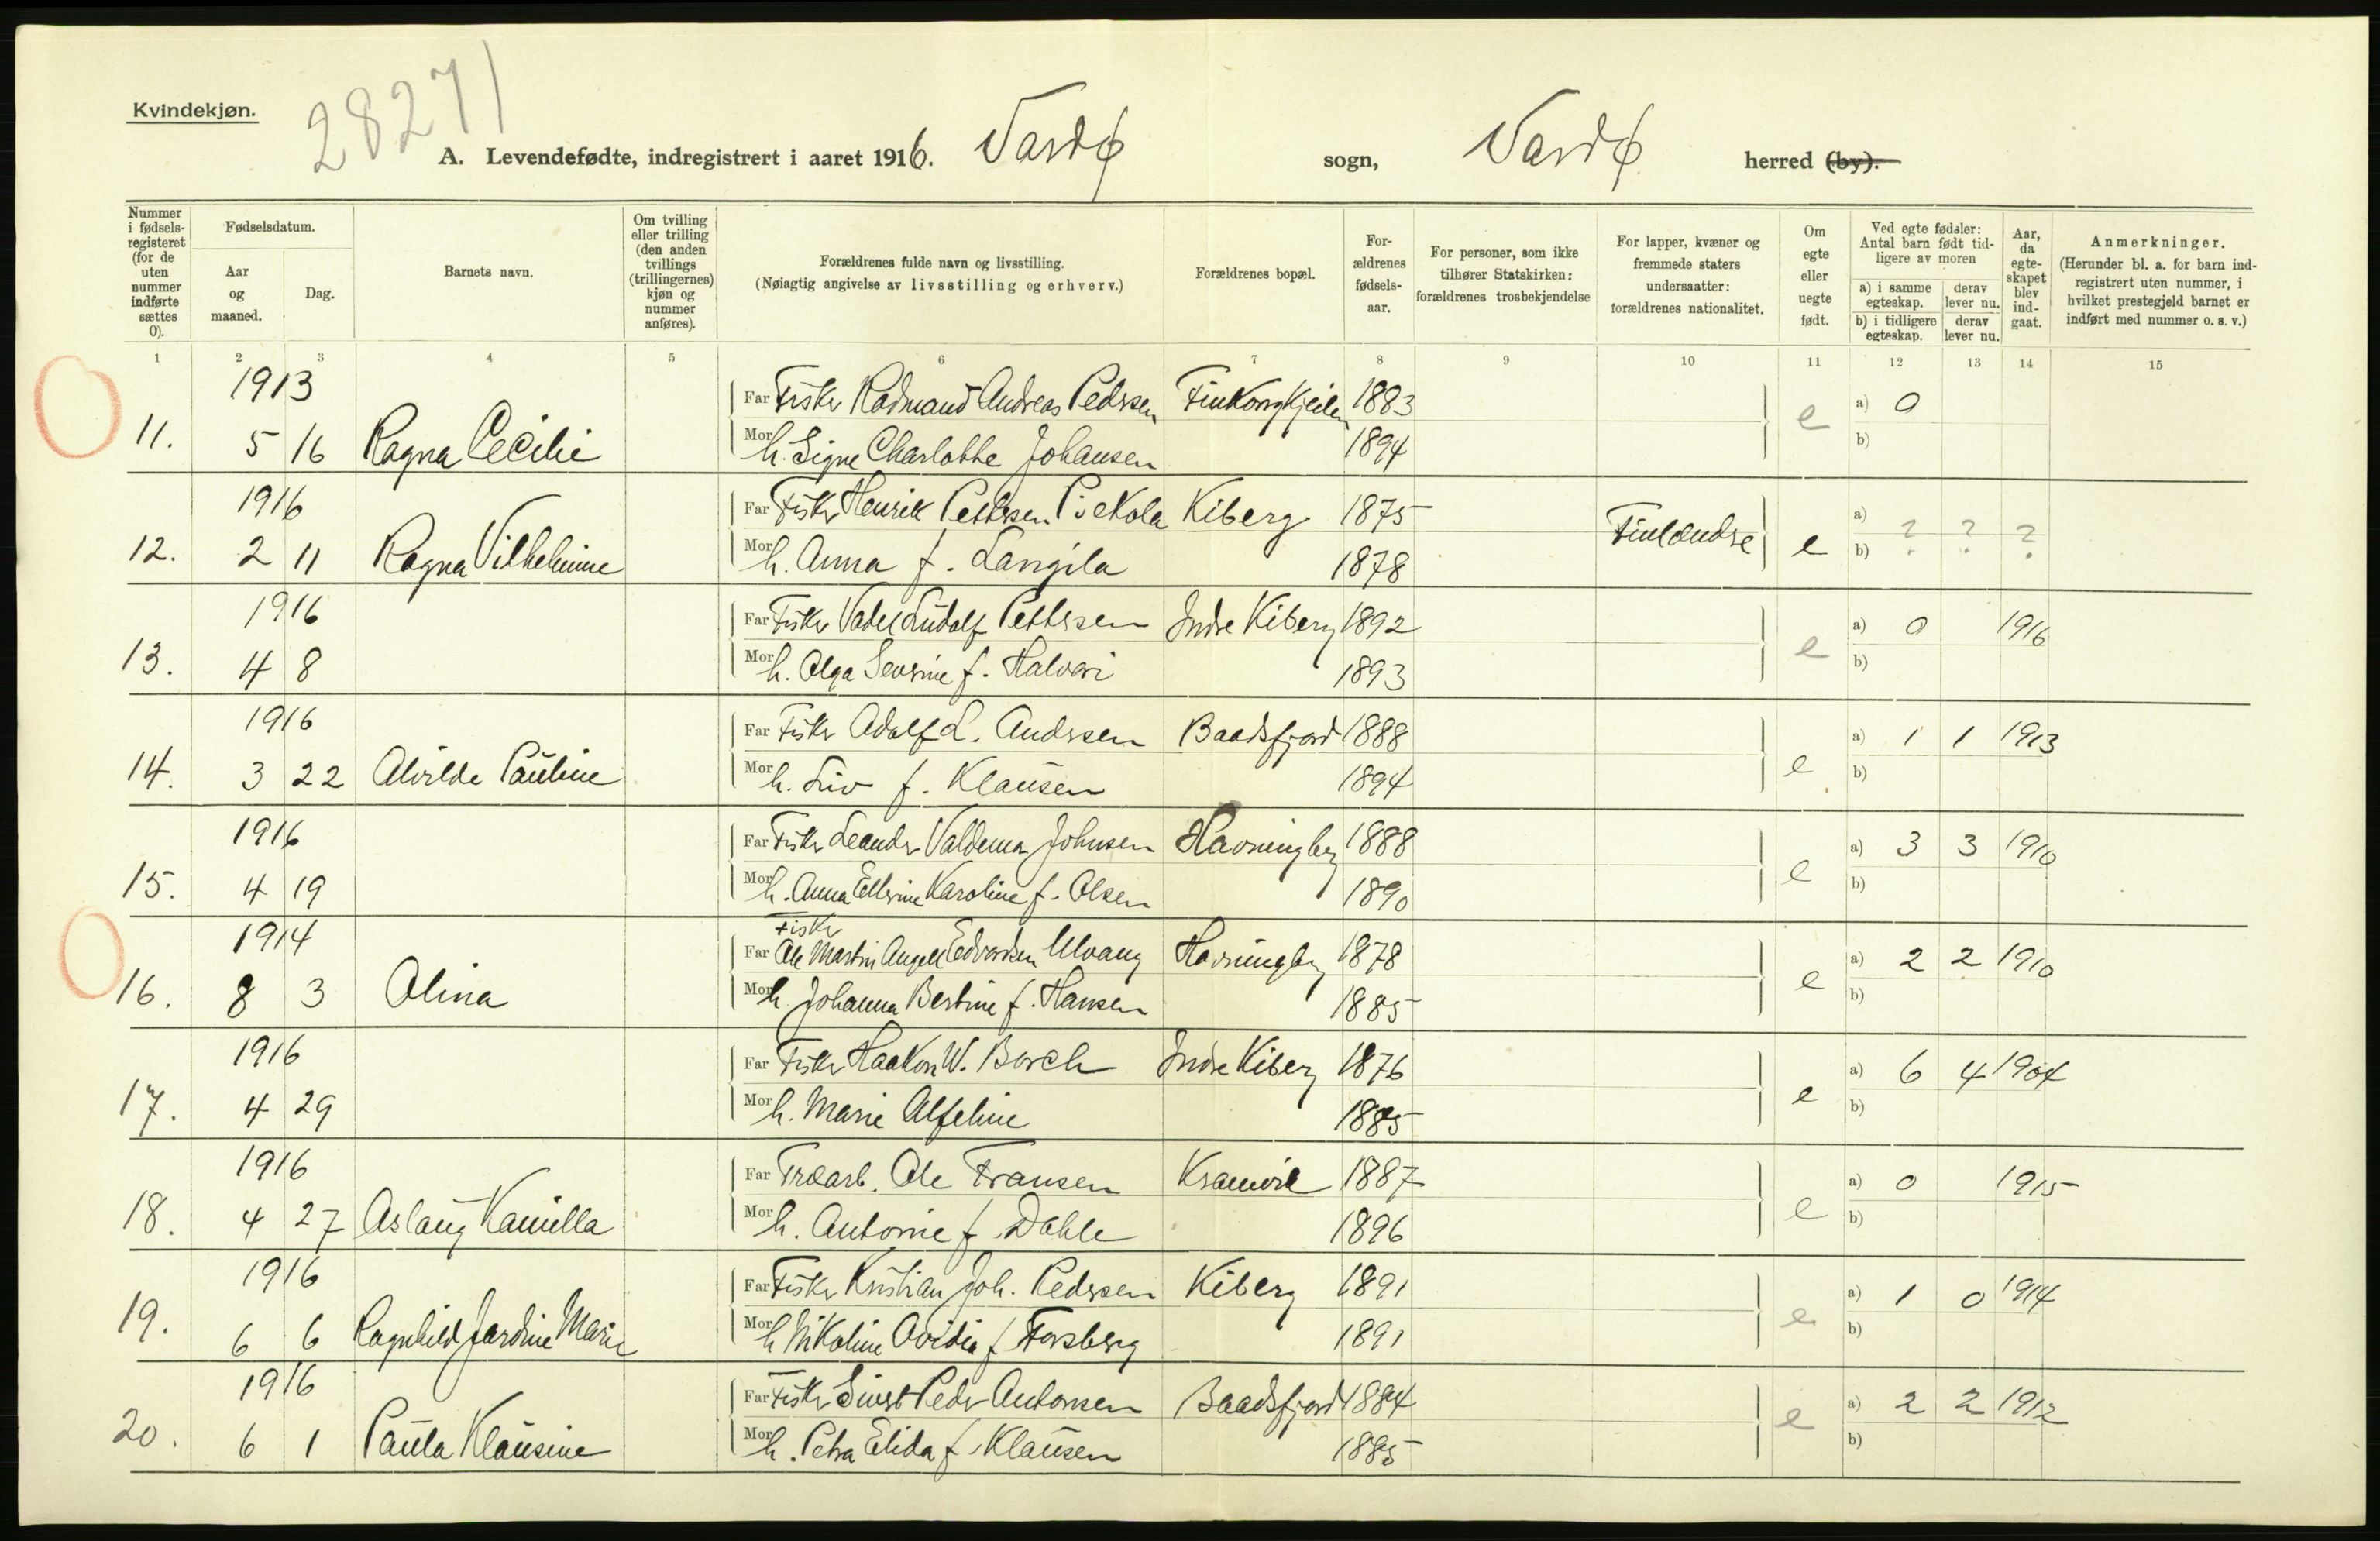 Kvindekjøn.
28271
A. Levendefødte, indregistrert i aaret 1916. Vardø sogn, Vardø herred (by).
Nummer i fødsels-registeret (for de uten nummer indførte sættes 0).
Fødselsdatum.
Aar og maaned.
Dag.
Barnets navn.
Om tvilling eller trilling (den anden tvillings (trillingernes) kjøn og nummer anføres).
Forældrenes fulde navn og livsstilling.
(Nøiagtig angivelse av livsstilling og erhverv.)
Forældrenes bopæl.
For-ældrenes fødsels-aar.
For personer, som ikke tilhører Statskirken: forældrenes trosbekjendelse
For lapper, kvæner og fremmede staters undersaatter: forældrenes nationalitet.
Om egte eller uegte født.
Ved egte fødsler: Antal barn født tid-ligere av moren
a) i samme egteskap.
derav lever nu.
b) i tidligere egteskap.
derav lever nu.
Aar, da egte-skapet blev ind-gaat.
Anmerkninger.
(Herunder bl. a. for barn ind-registrert uten nummer, i hvilket prestegjeld barnet er indført med nummer o. s. v.)
1 2 3 4 5 6 7 8 9 10 11 12 13 14 15
1913 Far Fisker Radmand Andreas Pedersen Finkongkjeilen 1883 a) 0
11. 5 16 Ragna Cecilie Mor h. Signe Charlotte Johansen 1894 e b)
1916 Far Fisker Henrik Pettersen Kiberg 1875 Finlandse a) ? ? ?
12. 2 11 Ragna Vilhelmine Mor h. Anna f. Langila 1878 e b)
1916 Far Fisker Ludolf Pettersen Indre Kiberg 1892 a) 0 1916
13. 4 8 Mor h. Olga Severine f. Halvari 1893 e b)
1916 Far Fisker Adolf L. Andersen Baadsfjord 1888 a) 1 1 1913
14. 3 22 Alvilde Pauline Mor h. Liv f. Klausen 1894 e b)
1916 Far Fisker Leander Valdemar Johnsen Havningberg 1888 a) 3 3 1910
15. 4 19 Mor h. Anna Karoline f. Olsen 1890 e b)
1914 Fisker
Far Ole Martin Angell Edvardsen Ulvang Havningberg 1878 a) 2 2 1910
16. 8 3 Olina Mor h. Johanna Bertine f. Hansen 1885 e b)
1916 Far Fisker Haakon W. Borch Indre Kiberg 1876 a) 6 4 1904
17. 4 29 Mor h. Marie Alfeline 1885 e b)
1916 Far Træarb. Ole Fransen Kramvik 1887 a) 0 1915
18. 4 27 Aslaug Kamilla Mor h. Antonie f. Dahle 1896 e b)
1916 Far Fisker Kristian Joh. Pedersen Kiberg 1891 a) 1 0 1914
19. 6 6 Ragnhild Jardine Marie Mor h. Nikoline Ovidia f. Forsberg 1891 e b)
1916 Far Fisker Peder Antonsen Baadsfjord 1884 a) 2 2 1912
20. 6 1 Paula Klausine Mor h. Petra Elida f. Klausen 1885 e b)